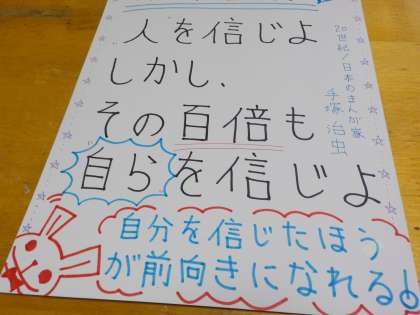 人を信じよ
しかし、
その百倍も
自らを信じよ
20世紀/日本のまんが家
手塚治虫
自分を信じたほう
が前向きになれる!